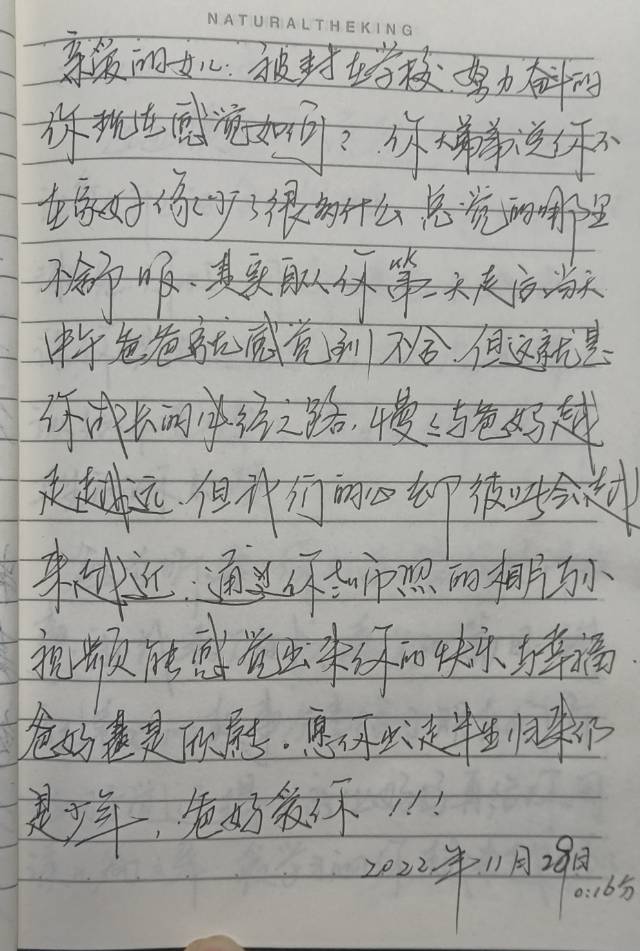 NATURALTHEKING
亲爱的女儿：被封在学校努力奋斗的
你现在感觉如何？你大弟弟说你不
在家好像少了很多什么总觉的哪里
不舒服、其实自从你第二天走后当天
中午爸爸就感觉到不舍、但这就是
你成长的必经之路，慢慢与爸妈越
走越远、但我们的心却彼此会越
来越近；通过你老师照的相片与小
视频能感觉出来你的快乐与幸福、
爸妈甚是欣慰。愿你出走半生归来仍
是少年，爸妈爱你！！！
2022年11月29日
0:16分